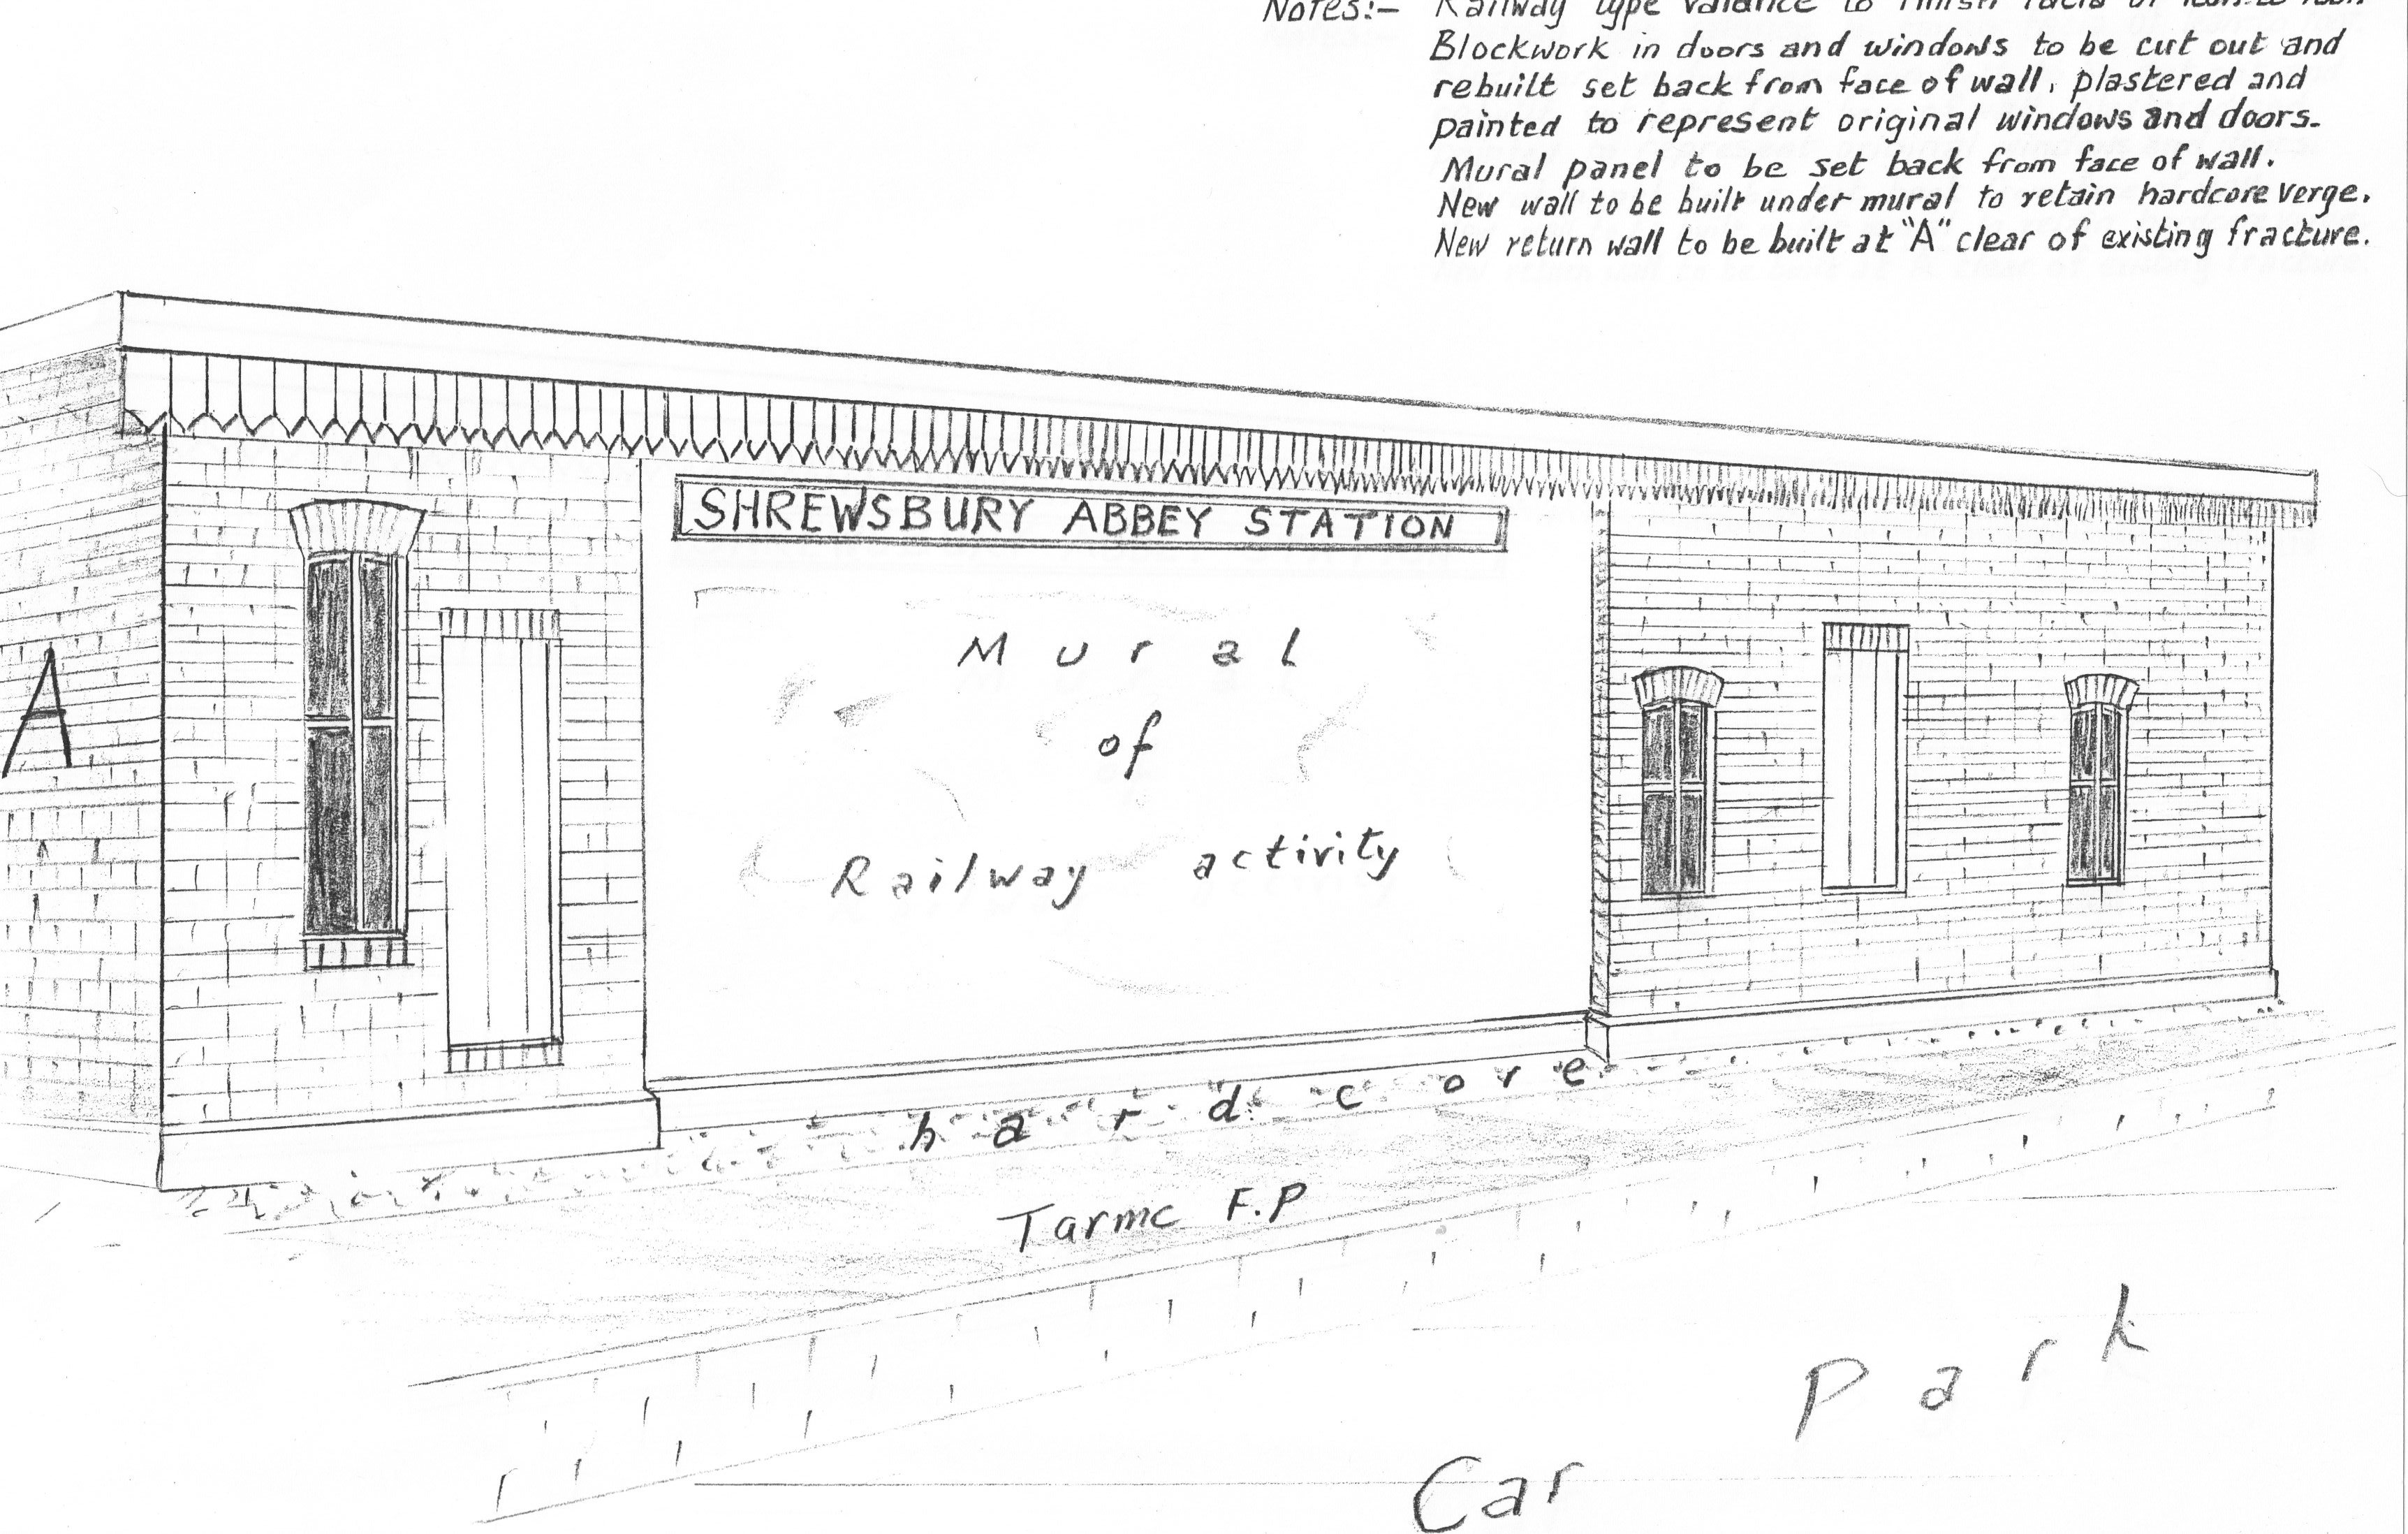 Notes:- Railway type valance to finish facia of lean-to roof.
Blockwork in doors and windows to be cut out and
rebuilt set back from face of wall, plastered and
painted to represent original windows and doors.
Mural panel to be set back from face of wall.
New wall to be built under mural to retain hardcore verge.
New return wall to be built at "A" clear of existing fracture.
SHREWSBURY ABBEY STATION
Mural
of
Railway activity
A
hard core
Tarmc F.P
Car Park